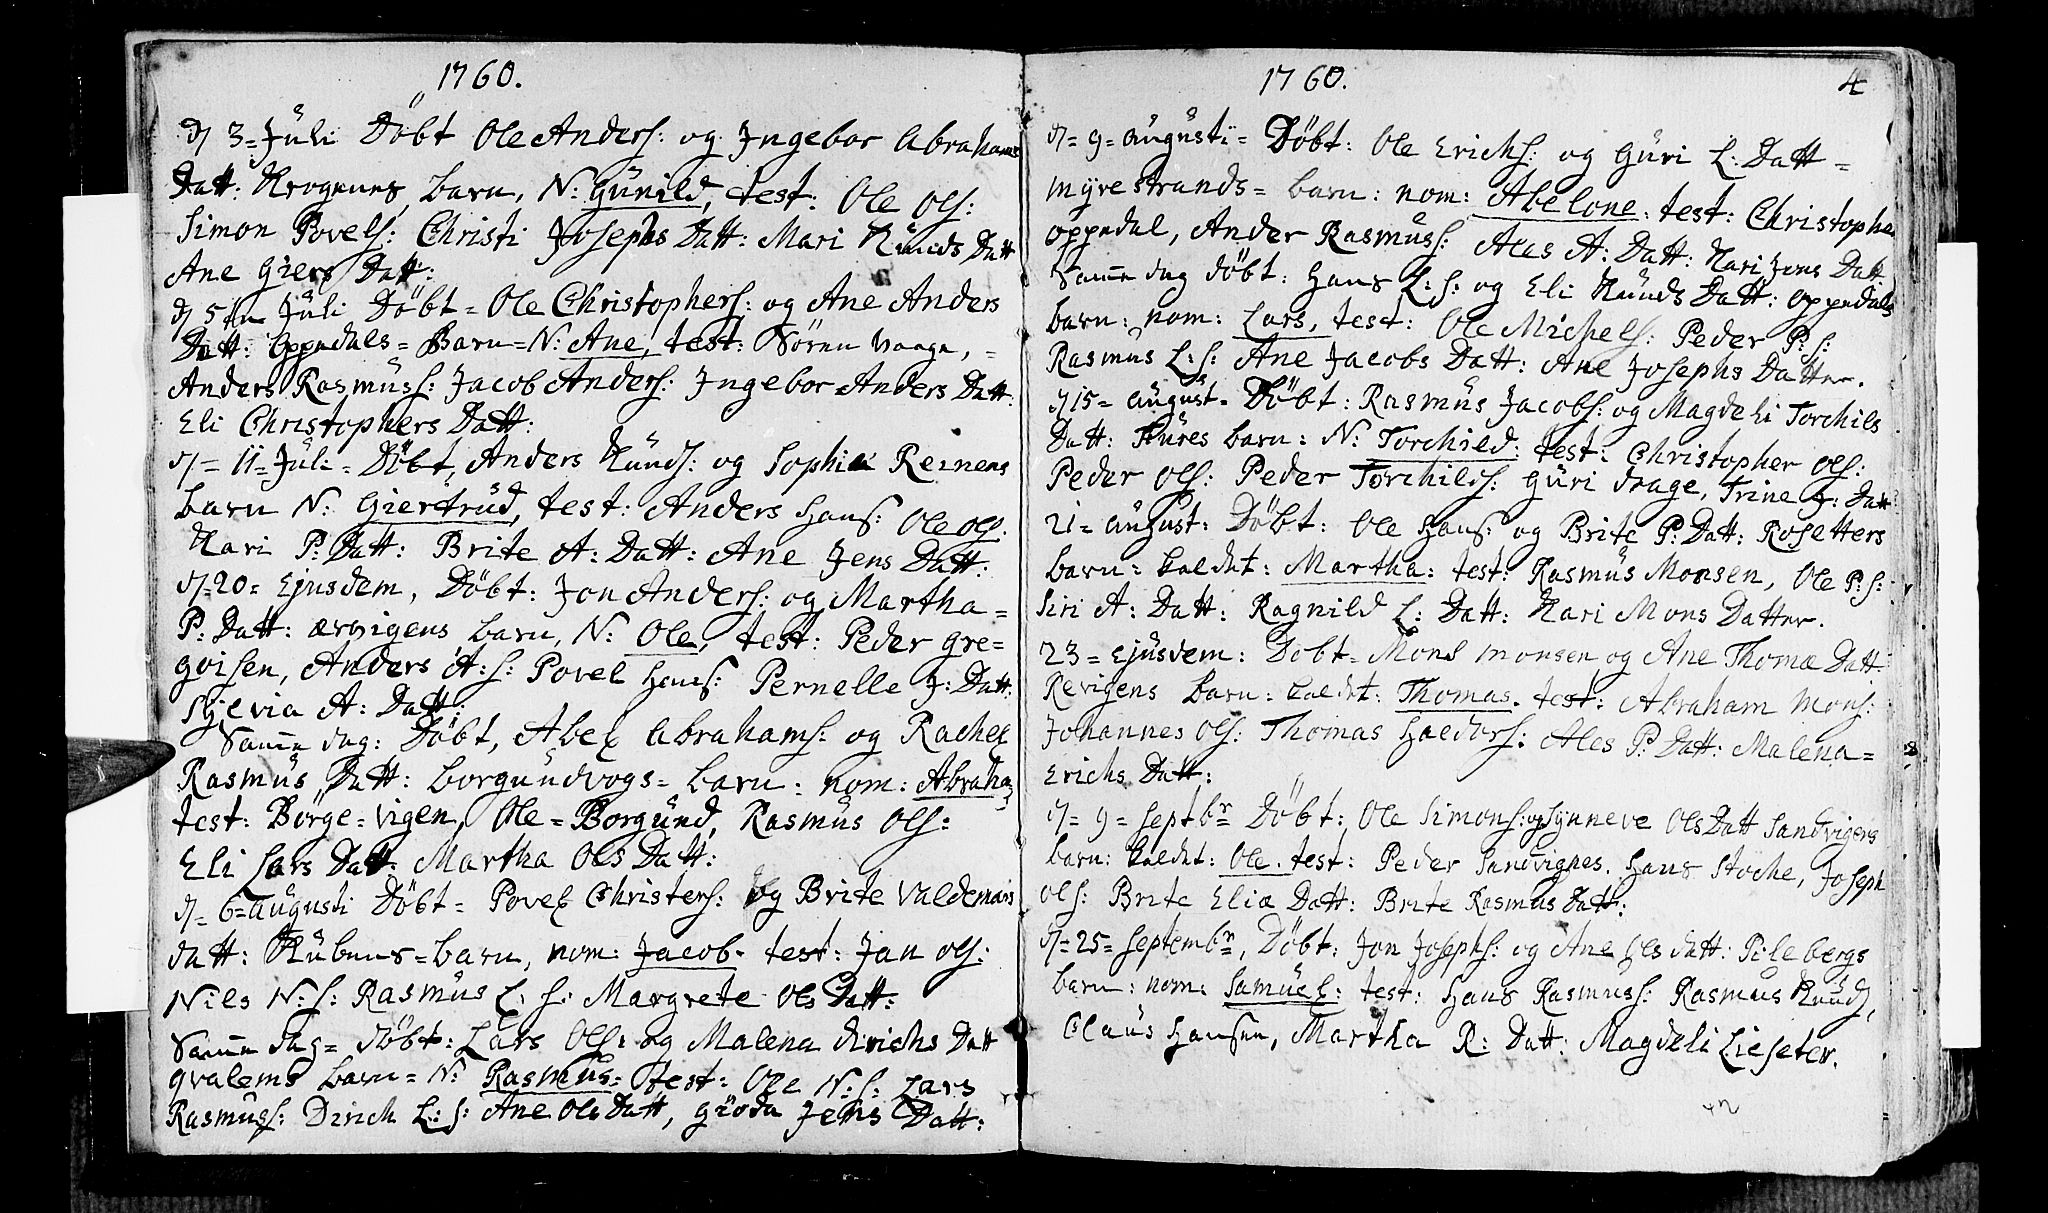 1760.
D 3 = Jüli Döbt Ole Anders: og Ingebor Abrahams
Datt: Krogenes barn, N: Günild, test: Ole Ols:
Simon Povels: Christi Josephs Datt: Mari Knüds Datt
Ane Giers Datt:
D 5te Jüli Döbt = Ole Christophers: og Ane Anders
Datt: Oppedals = Barn = N: Ane, test: Sören Vaage, =
Anders Rasmüss: Jacob Anders: Ingebor Anders Datt:
Eli Christophers Datt:
D = 11 = Jüli = Döbt, Anders Knüds: og Sophia Reinens
barn N: Giertrüd, test: Anders Hans: Ole Ols:
Kari P: Datt: Brite A: Datt: Ane Jens Datt:
D = 20 = Ejusdem, Döbt: Jon Anders: og Martha =
P: Datt: ærvigens barn, N: Ole, test: Peder Gre=
goisen, Anders A: s: Povel Hans: Pernelle J: Datt:
Sylvia A: Datt:
Samme dag: Döbt, Abel Abrahams: og Rachel
Rasmüs Datt: borgündvogs = barn: nom: Abraham
test: Börge = Vigen, Ole = Borgünd, Rasmüs Ols:
Eli Lars Datt: Martha Ols Datt:
D = 6 = Augüsti Döbt = Povel Christens: og Brite Valdemars
datt: Kübens = barn, nom: Jacob. test: Jan Ols:
Nils N: s: Rasmüs L: s: Margrete Ols Datt:
Samme dag = döbt: Lars Ols: og Malena dirichs Datt
qvalems barn = N: Rasmüs: test: Ole N: s: Lars
Rasmüss: Dirich L: s: Ane Ols Datt, Jens Datt:
1760.
4
D = 9 = Augüsti = Döbt: Ole Erichs: og Güri L: Datt =
Myrestrands = barn: nom: Abelone: test: Christopher
Oppedal, Ander Rasmüss: Ales A: Datt: Kari Jens Datt
Samme dag döbt: Hans L: s: og Eli Knüds Datt: Oppedals
barn: nom: Lars, test: Ole Michels: Peder P: s:
Rasmüs L: s: Ane Jacobs Datt: Ane Josephs Datter.
D 15 = Augüst = Döbt: Rasmüs Jacobs: og Magdeli Torchils
Datt: barn: N: Torchild: test: Christopher Ols:
Peder Ols: Peder Torchilds: Güri drage, Trine J: Datt
21 = Augüst: Döbt: Ole Hans: og Brite P: Datt: Rosetters
barn = kaldet: Martha: test: Rasmüs Monsen, Ole P: s:
Siri A: Datt: Ragnild L: Datt: Kari Mons Datter.
23 = Ejüsdem: Döbt = Mons Monsen og Ane Thomæ Datt
Revigens barn: kaldet: Thomas. test: Abraham Mons:
Johannes Ols: Thomas Haldors: Ales P: Datt: Malena =
Erichs Datt:
D = 9 = Septbr Döbt: Ole Simons: og Synneve Ols Datt Sandvigens
barn: kaldet: Ole. test: Peder Sandvignes, Hans Stoche, Joseph
Ols: Brite Eliæ Datt: Brite Rasmüs Datt:
D = 25 = Septembr, Döbt: Jon Josephs: og Ane Ols datt: Pilebergs
barn: nom: Samüel: test: Hans Rasmüss: Rasmüs Knüds,
Claüs Hansen, Martha R: Datt: Magdeli Lieseter.